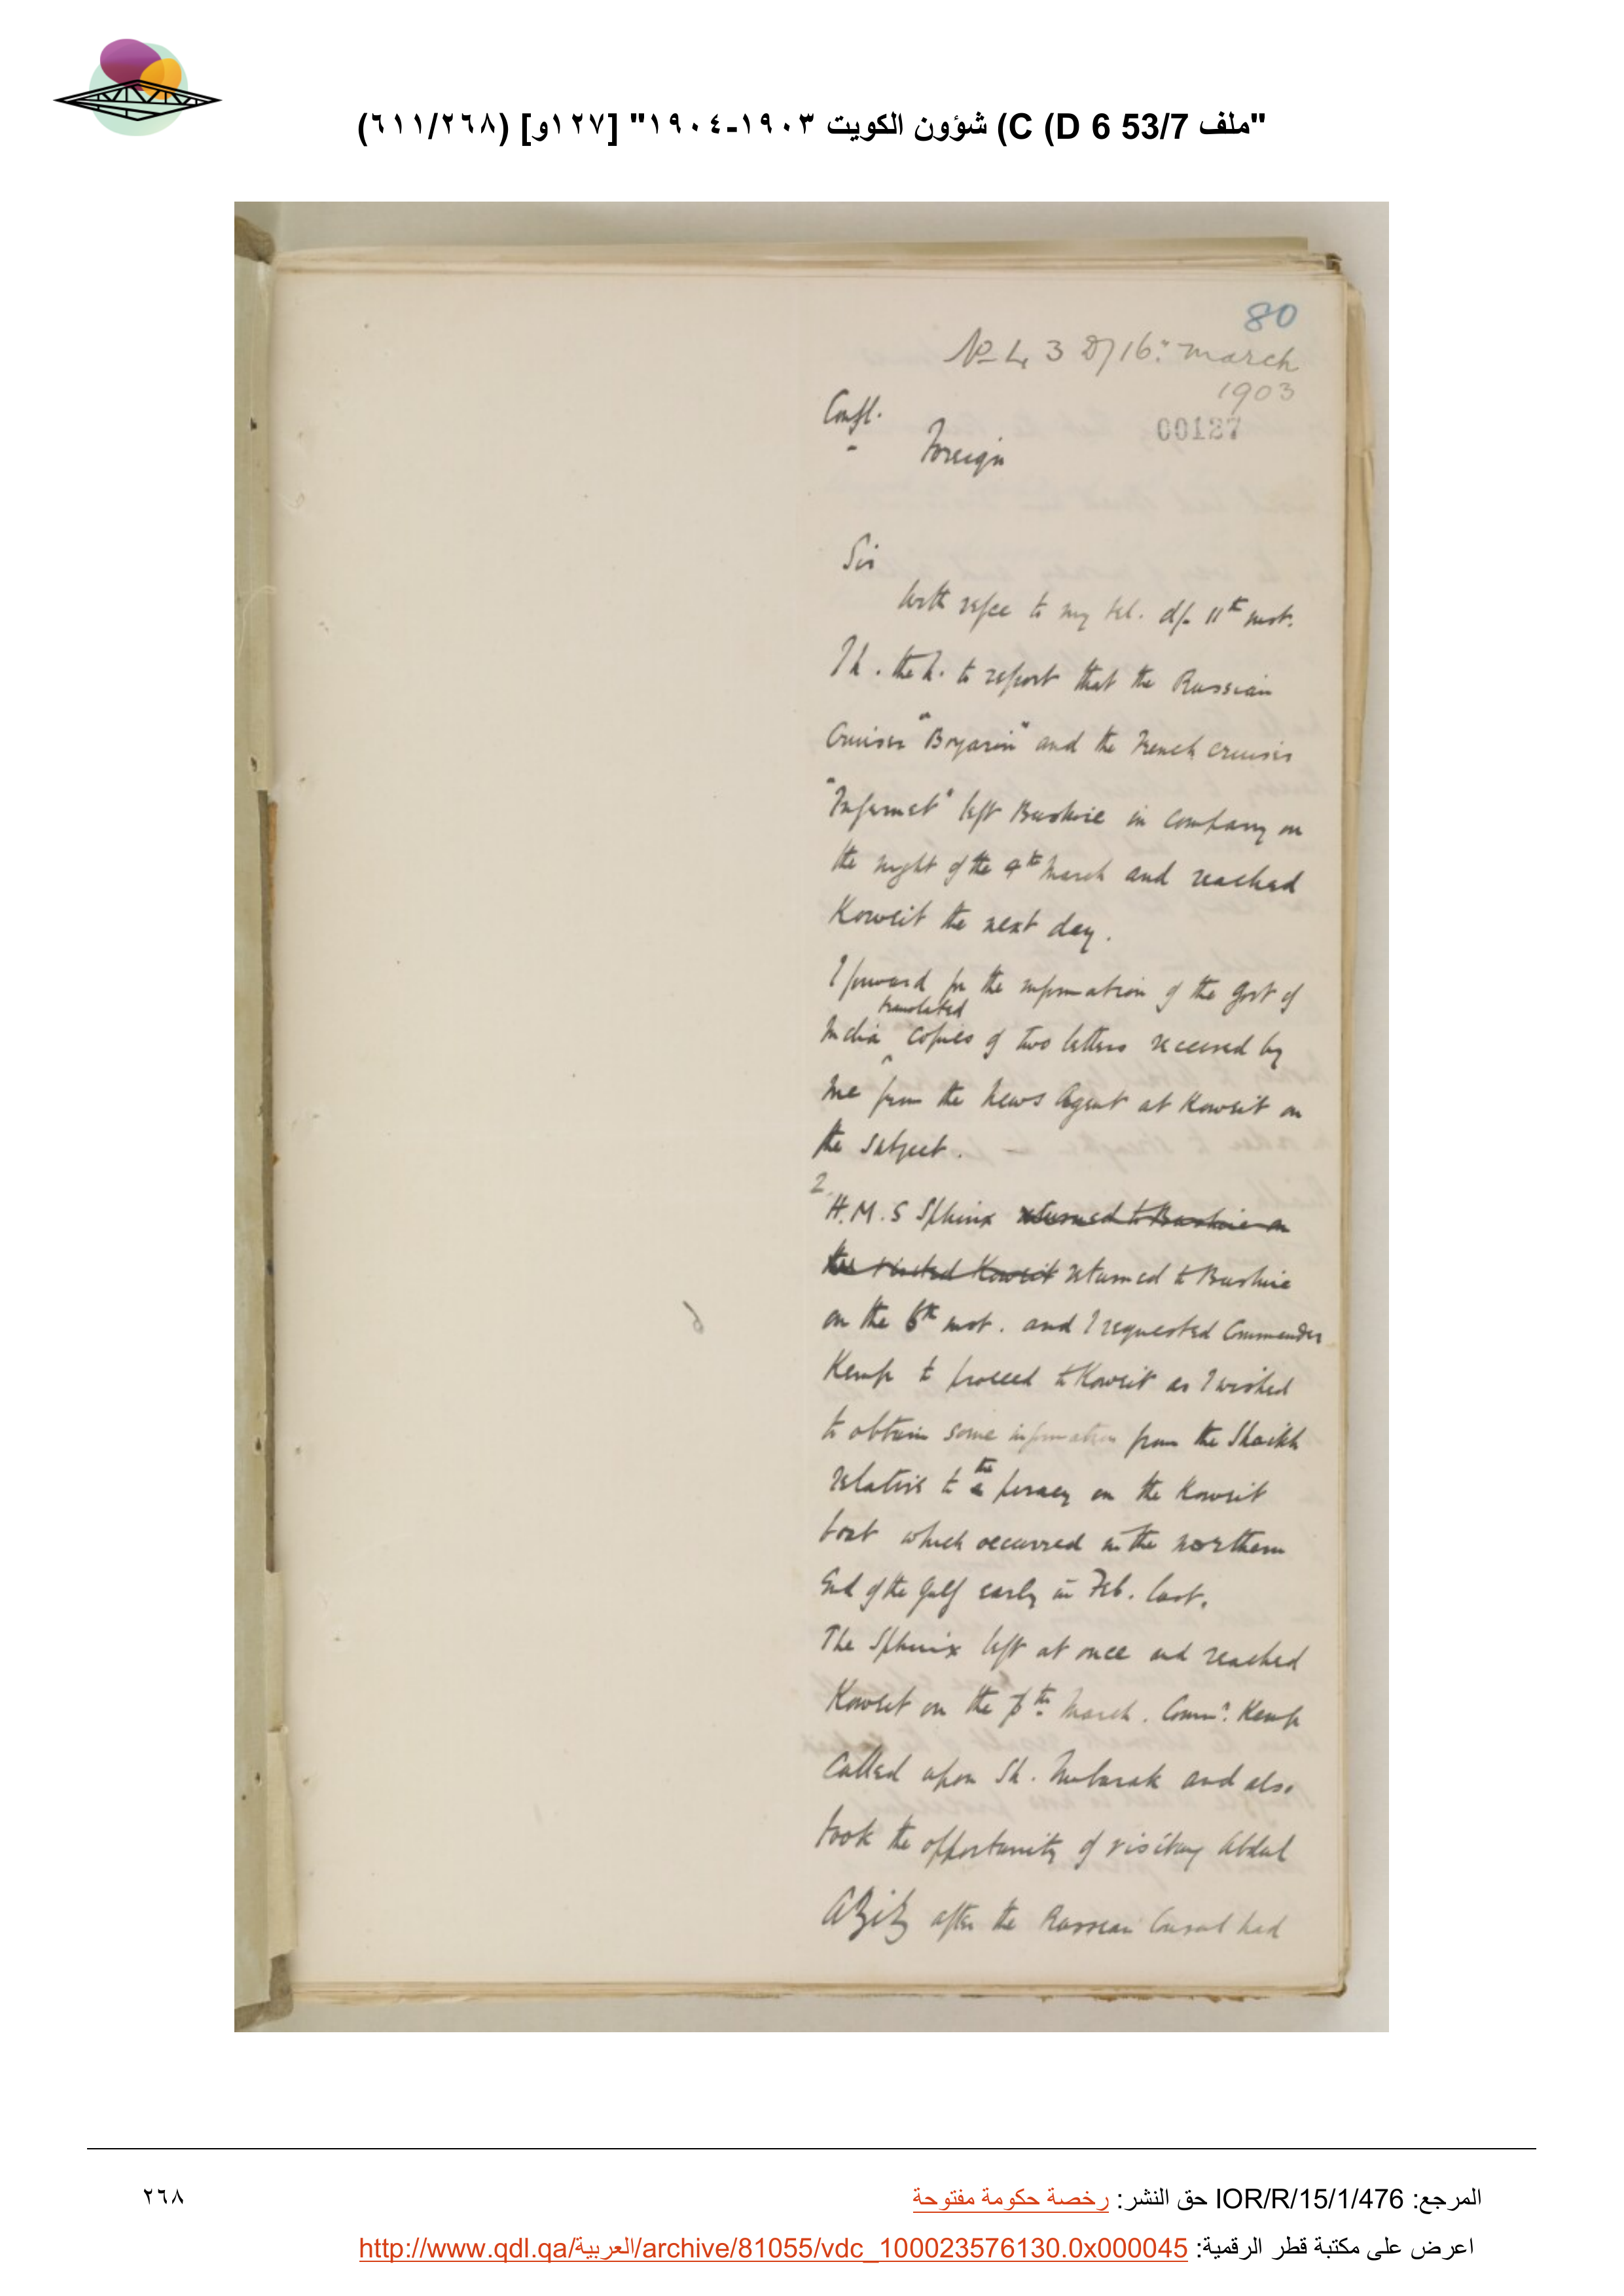 "ملف 53/7 D 6) C) شؤون الكويت ١٩٠٣-١٩٠٤" [١٢٧و] (٦١١/٢٦٨)
80
No 43 D/16th march
1903
00127
Confl.
Foreign
Sir
With refce to my tel. d/- 11th inst.
I h. the h. to report that the Russian
Cruiser "Boyarin" and the French cruiser
"Infernet" left Bushire in company on
the night of the 4th March and reached
Koweit the next day.
I forward for the information of the Govt of
translated
India ^ copies of two letters received by
me from the News Agent at Koweit on
the subject.
2.
H.M.S Sphinx returned to Bushire on
the visited Koweit returned to Bushire
on the 6th inst. and I requested Commander
Kemp to proceed to Koweit as I wished
to obtain some information from the Shaikh
the
relative to a piracy on the Koweit
boat which occurred in the northern
End of the Gulf early in Feb. last.
The Sphinx left at once and reached
Koweit on the 7th March. Commr. Kemp
called upon Sh. Mubarak and also
took the opportunity of visiting Abdul
Aziz after the Russian Consul had
المرجع: IOR/R/15/1/476 حق النشر: رخصة حكومة مفتوحة
٢٦٨
اعرض على مكتبة قطر الرقمية: http://www.qdl.qa/العربية/archive/81055/vdc_100023576130.0x000045